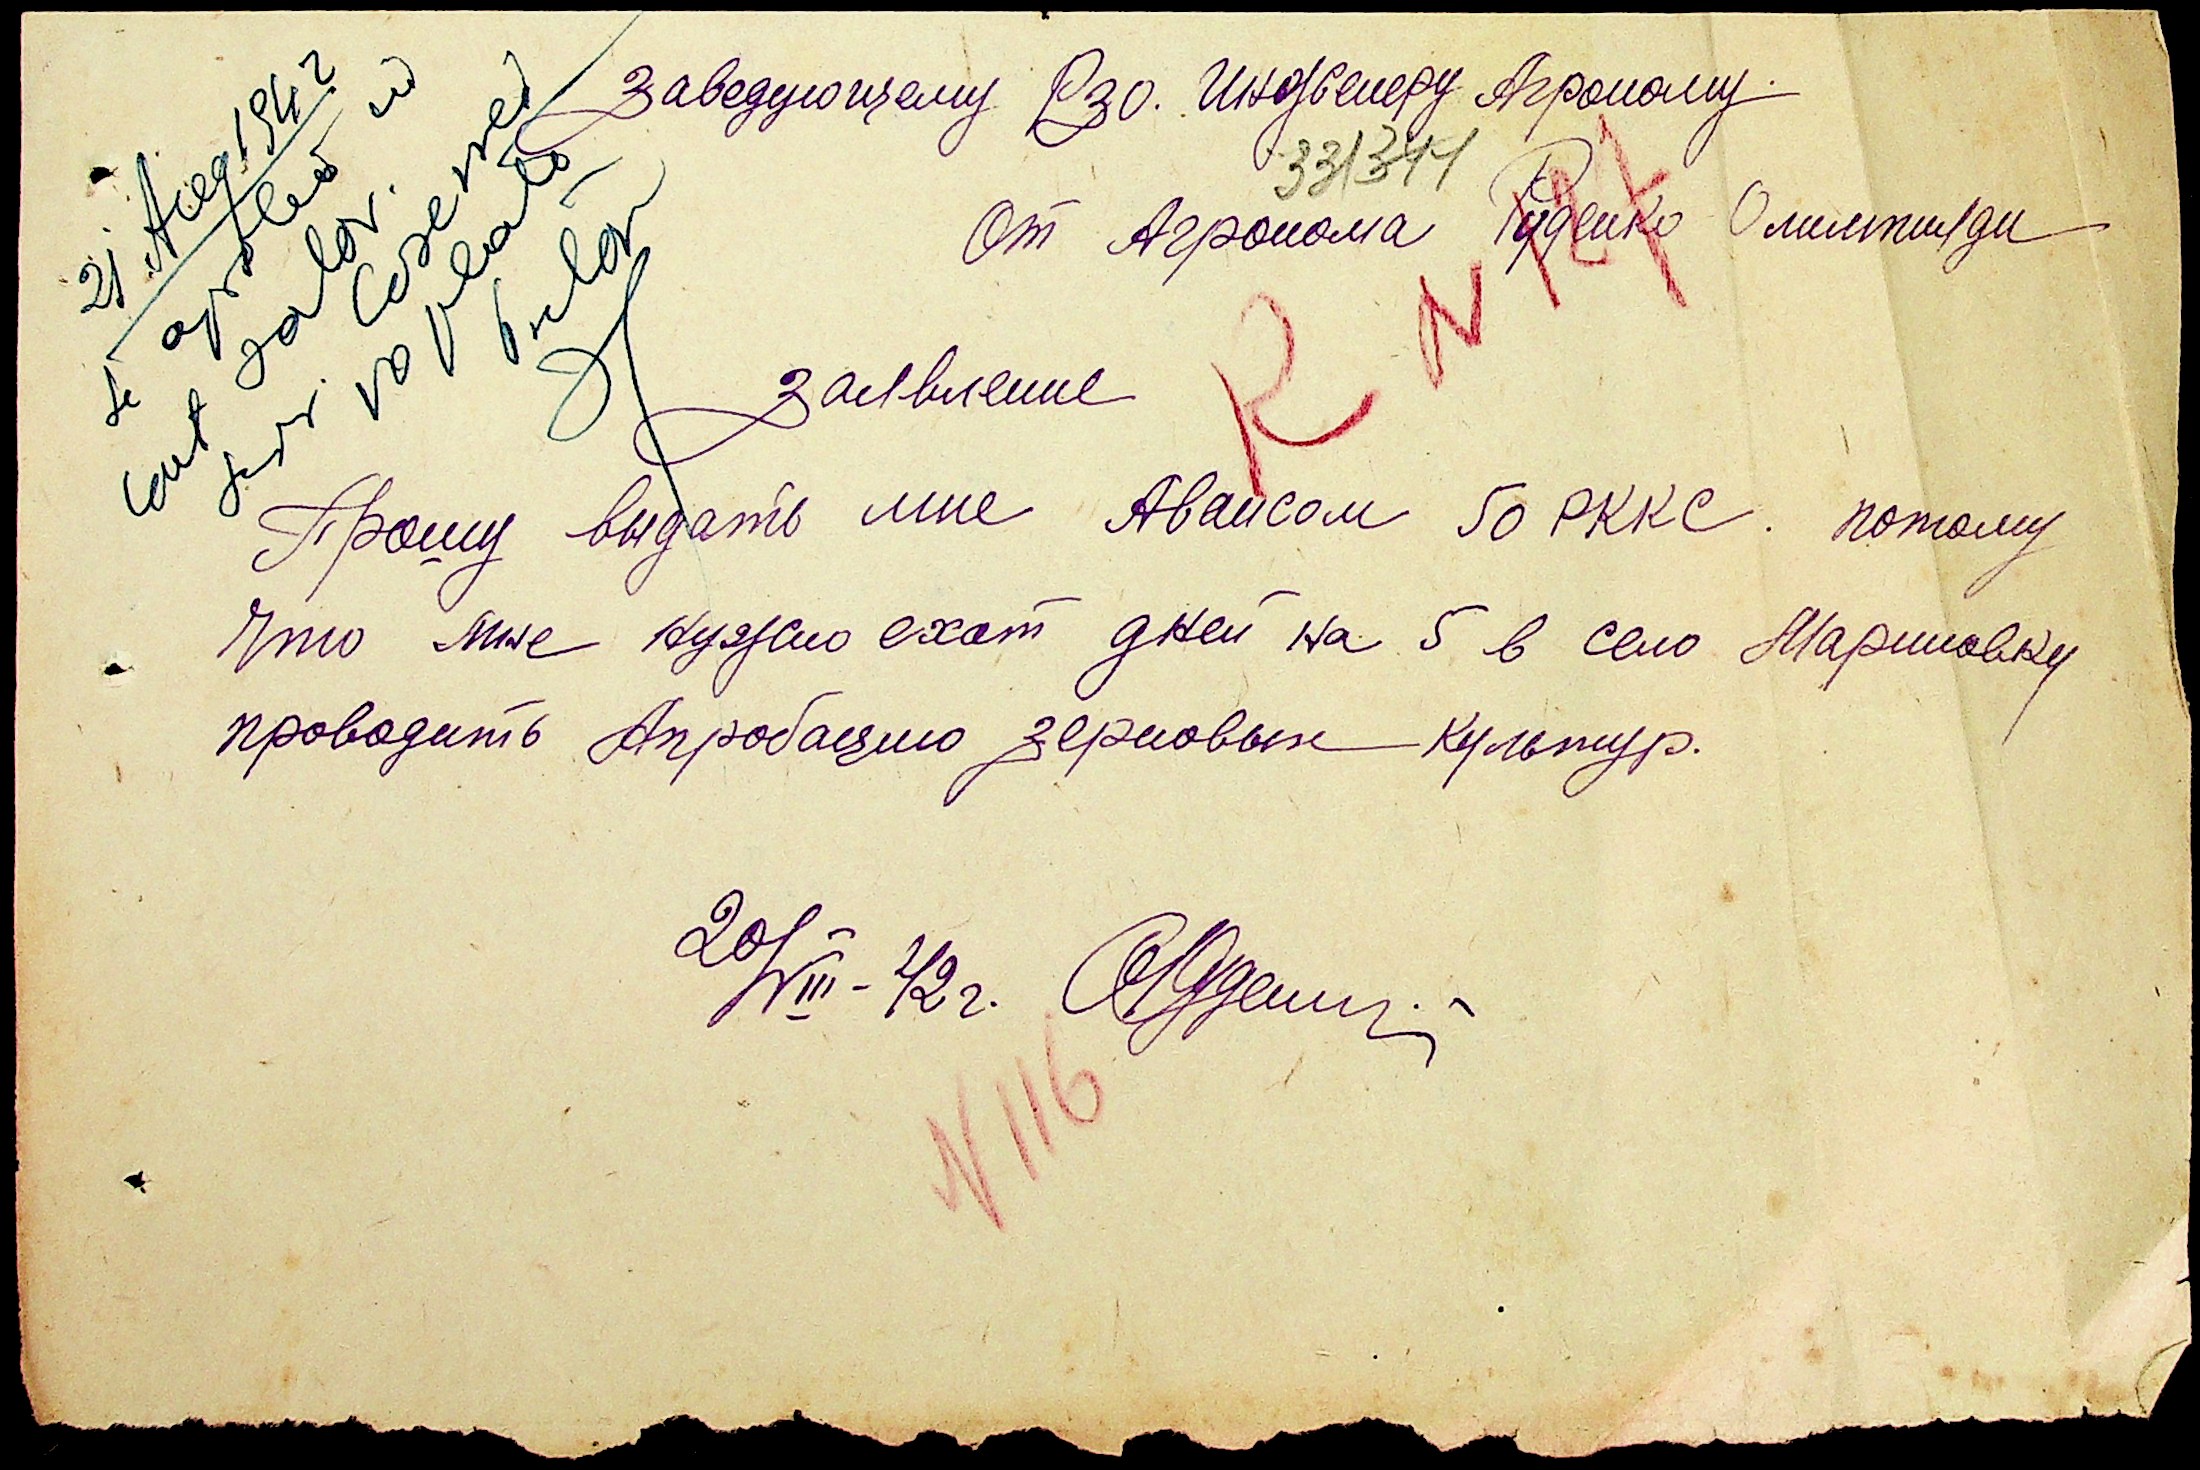 21 Aug 1942
se aprobă
cont
Заведующему РЗО. Инженеру Агроному.
331341
От Агронома Руденко Олимпияди
R N
Заявление
Прошу выдать мне Авансом 50 РККС. потому
что мне нужно ехат дней на 5 в село Мариновку
проводить Апробацию зерновых культур.
20/VIII-42 г. ОРуденко
N 116